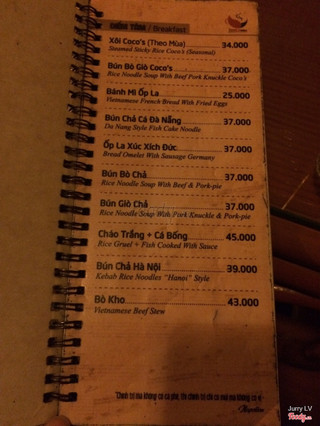 ĐIỂM TÂM / Breakfast
Xôi Coco's (Theo Mùa) 34.000
Steamed Sticky Rice Coco's (Seasonal)
Bún Bò Giò Coco's 37.000
Rice Noodle Soup With Beef Pork Knuckle Coco's
Bánh Mì Ốp La 25.000
Vietnamese French Bread With Fried Eggs
Bún Chả Cá Đà Nẵng 37.000
Da Nang Style Fish Cake Noodle
Ốp La Xúc Xích Đức 37.000
Bread Omelet With Sausage Germany
Bún Bò Chả 37.000
Rice Noodle Soup With Beef & Pork-pie
Bún Giò Chả 37.000
Rice Noodle Soup With Pork Knuckle & Pork-pie
Cháo Trắng + Cá Bống 45.000
Rice Gruel + Fish Cooked With Sauce
Bún Chả Hà Nội 39.000
Kebab Rice Noodles "Hanoi" Style
Bò Kho 43.000
Vietnamese Beef Stew
Jurry LV
Foody.vn